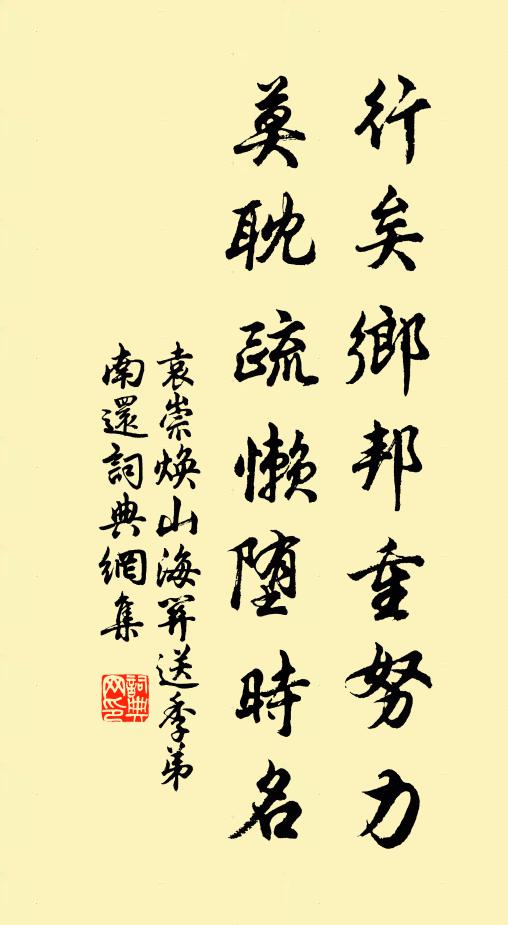 行矣鄉邦重努力
莫耽疏懶墮時名
袁崇煥山海關送季弟
南還詞典網集
詞典
网印